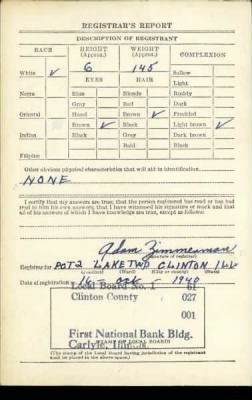 REGISTRAR'S REPORT
DESCRIPTION OF REGISTRANT
RACE HEIGHT (Approx.) WEIGHT (Approx.) COMPLEXION
White ✓ 6 145 Sallow
EYES HAIR Light
Negro Blue Blonde Ruddy
Gray Red Dark
Oriental Hazel Brown ✓ Freckled
Brown ✓ Black Light brown ✓
Indian Black Gray Dark brown
Bald Black
Filipino
Other obvious physical characteristics that will aid in identification
NONE
I certify that my answers are true; that the person registered has read or has had
read to him his own answers; that I have witnessed his signature or mark and that
all of his answers of which I have knowledge are true, except as follows:
Adam Zimmerman
(Signature of registrar)
Registrar for PCT 2 LAKE TWP CLINTON ILL
(Precinct) (Ward) (City or county) (State)
Date of registration 16 - Oct - 1940
Local Board No. 1 61
Clinton County 027
001
First National Bank Bldg.
(STAMP OF LOCAL BOARD)
Carlyle, Illinois.
(The stamp of the Local Board having jurisdiction of the registrant
shall be placed in the above space.)